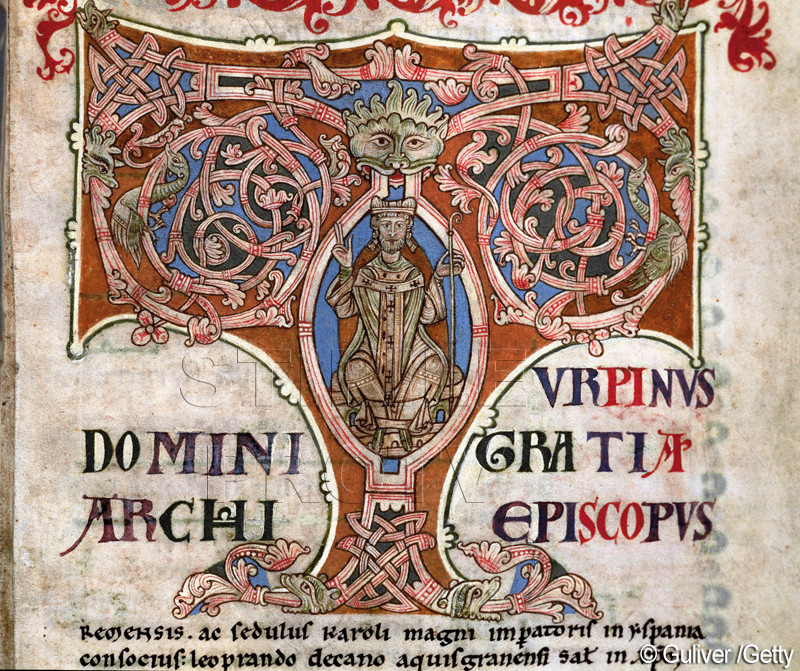 TVRPINVS
DOMINI GRATIA
ARCHI EPISCOPVS
Remensis. ac sedulus karoli magni imꝑatoris in yspania
consocius: leoprando decano aquisgranensi sał in
©Guliver /Getty